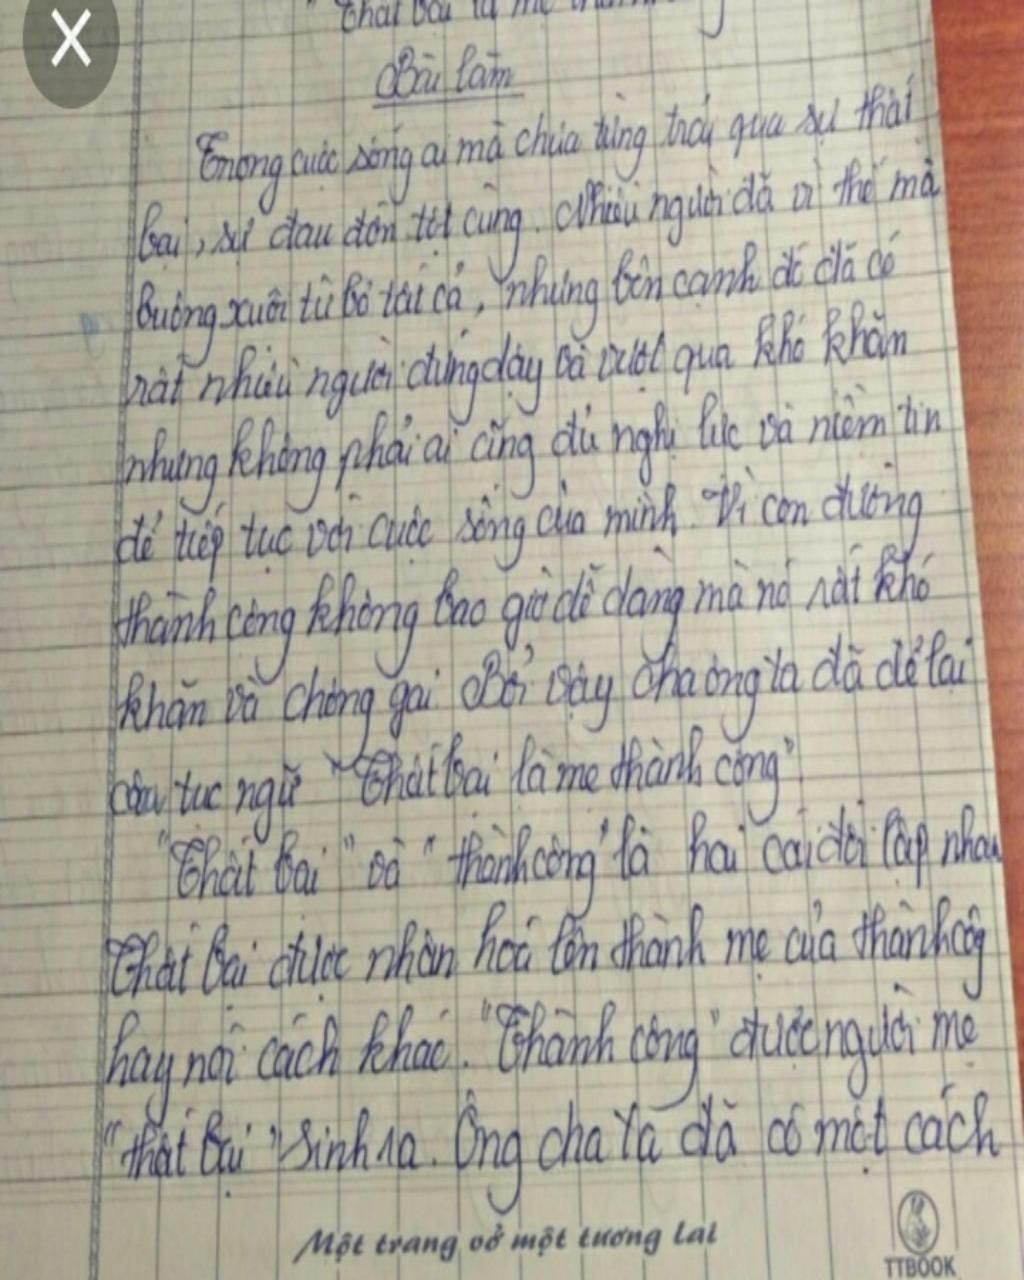 "Thất bại là mẹ thành công
Bài làm
Trong cuộc sống ai mà chưa từng trải qua sự thất
bại, sự đau đớn tột cùng. Nhiều người đã vì thế mà
buông xuôi từ bỏ tất cả, nhưng bên cạnh đó đã có
rất nhiều người đứng dậy và vượt qua khó khăn
nhưng không phải ai cũng đủ nghị lực và niềm tin
để tiếp tục với cuộc sống của mình. Vì con đường
thành công không bao giờ dễ dàng mà nó rất khó
khăn và chông gai. Bởi vậy cha ông ta đã để lại
câu tục ngữ "Thất bại là mẹ thành công".
"Thất bại" và "thành công" là hai cái đối lập nhau
Thất bại được nhân hoá lên thành mẹ của thành công
hay nói cách khác. "Thành công" được người mẹ
"thất bại" sinh ra. Ông cha ta đã có một cách
Một trang vở một tương lai
TTBOOK